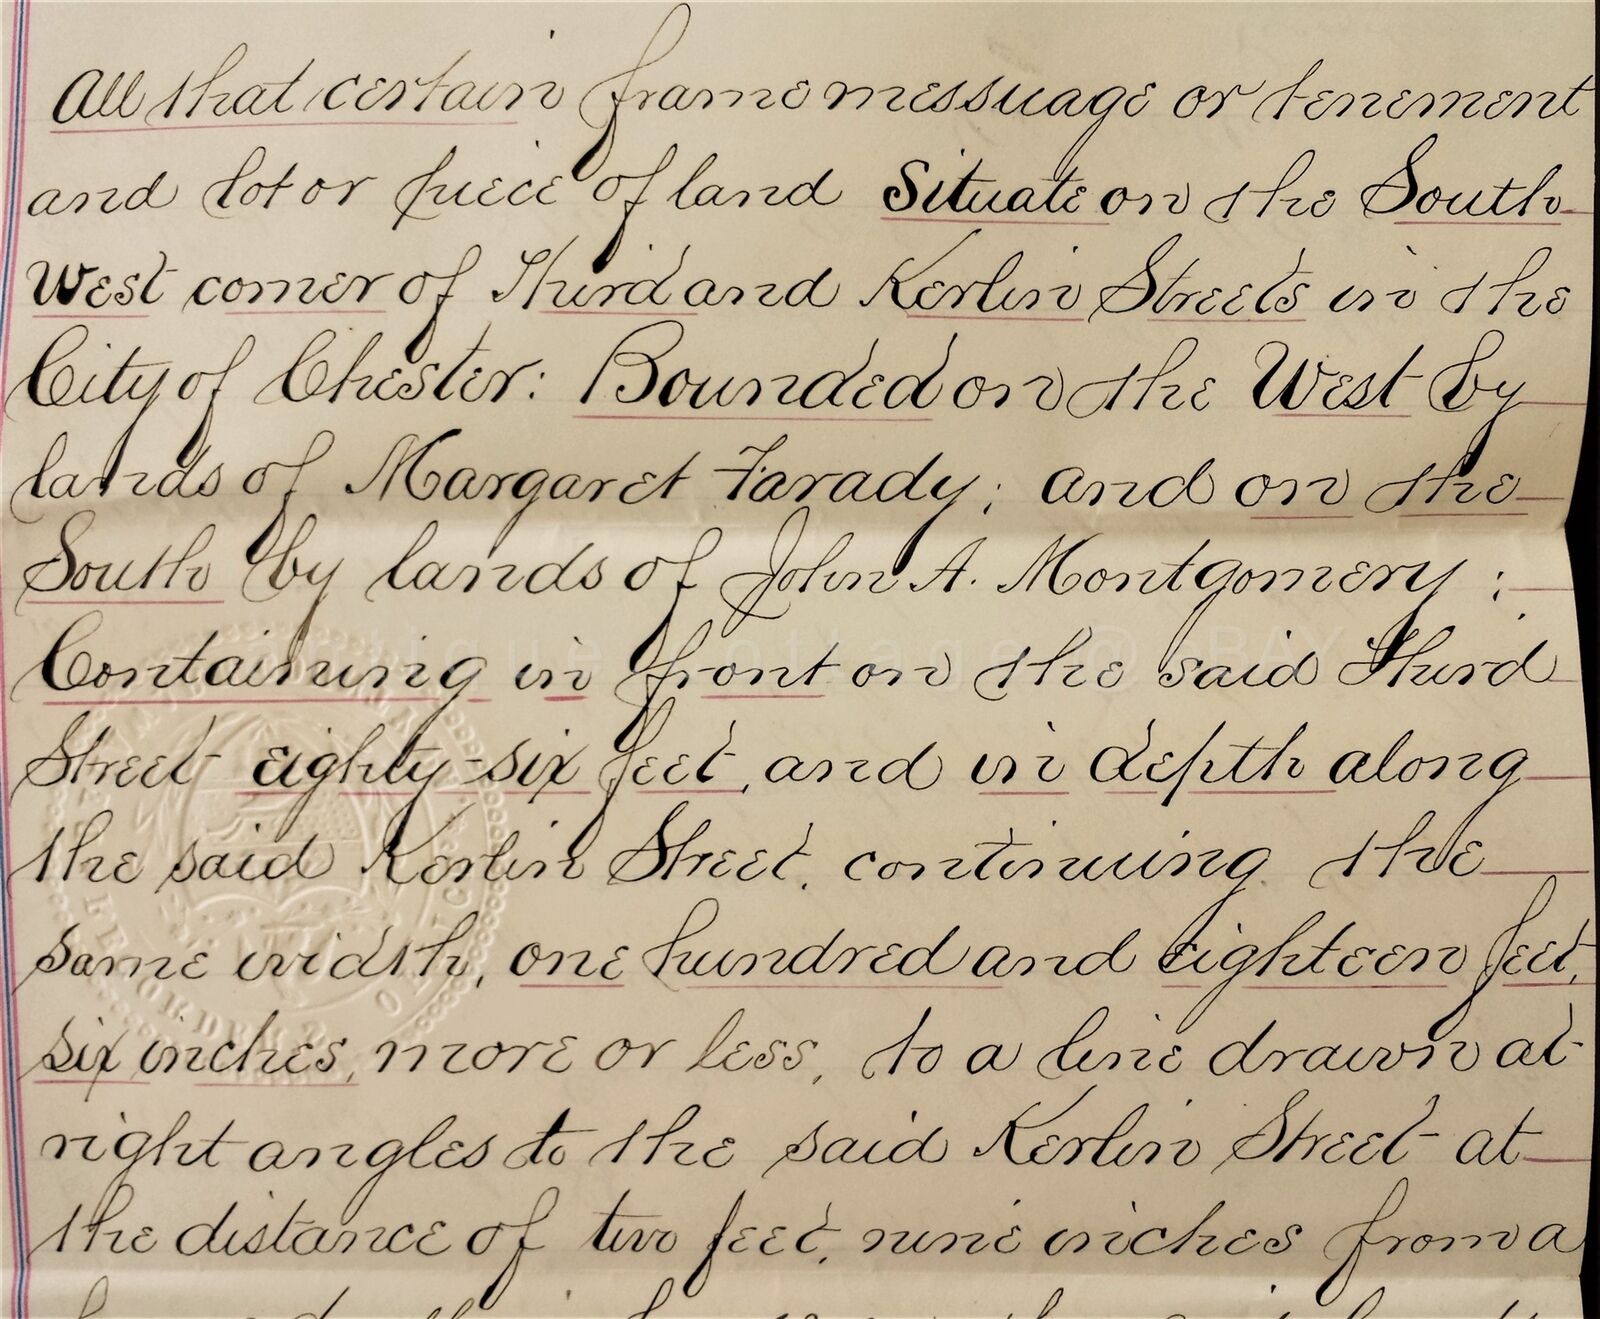 All that certain frame messuage or tenement
and lot or piece of land Situate on the South
West corner of Third and Kerlin Streets in the
City of Chester: Bounded on the West by
lands of Margaret Farady; and on the
South by lands of John A. Montgomery;
Containing in front on the said Third
Street eighty-six feet, and in depth along
the said Kerlin Street, continuing the
same width, one hundred and eighteen feet,
six inches, more or less, to a line drawn at
right angles to the said Kerlin Street at
the distance of two feet, nine inches from a